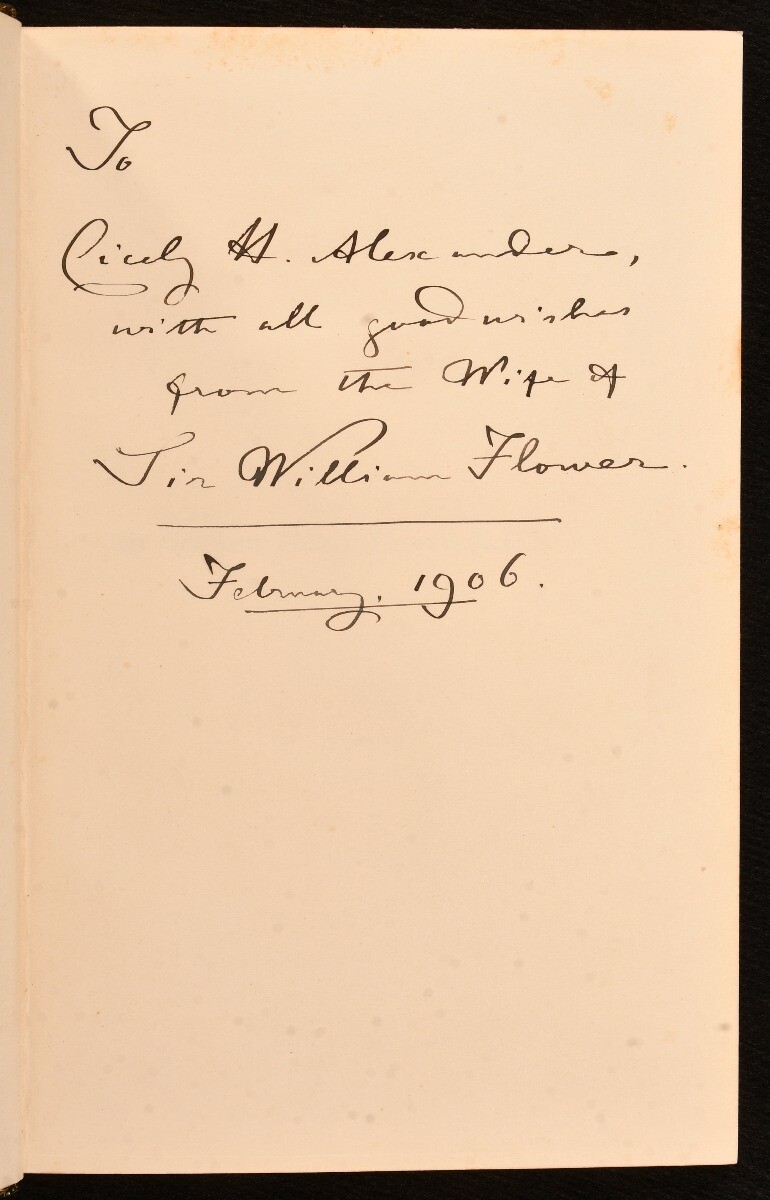 To
Cicely H. Alexander,
with all good wishes
from the Wife of
Sir William Flower.
February. 1906.